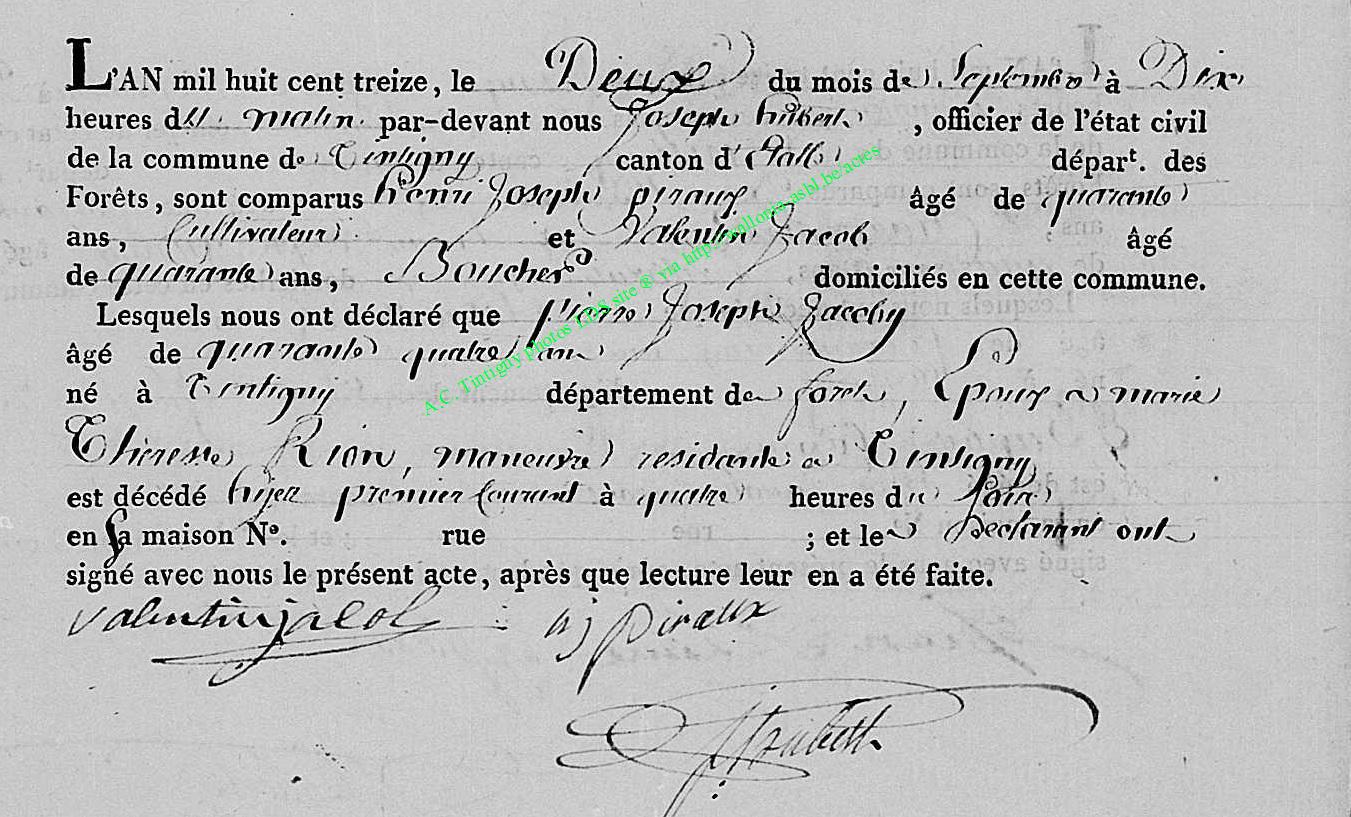 L'AN mil huit cent treize, le Deux du mois de Septembre à Dix
heures du matin par-devant nous Joseph hubert, officier de l'état civil
de la commune de Tintigny canton d'Etalle départ. des
Forêts, sont comparus henri Joseph piraux âgé de quarante
ans, Cultivateur et Valentin Jacob âgé
de quarante ans, Boucher domiciliés en cette commune.
Lesquels nous ont déclaré que pierre Joseph Jacoby
âgé de quarante quatre ans
né à Tintigny département des forets, Epoux a marie
Therese Rion, maneuvre residante a Tintigny
est décédé hyer premier Courant à quatre heures du Soir
en Sa maison N°. rue ; et les Declarant ont
signé avec nous le présent acte, après que lecture leur en a été faite.
valentin jacob hj piraux
JHubert
A.C. Tintigny photos LDS site ® via http://wallonia.asbl.be/actes